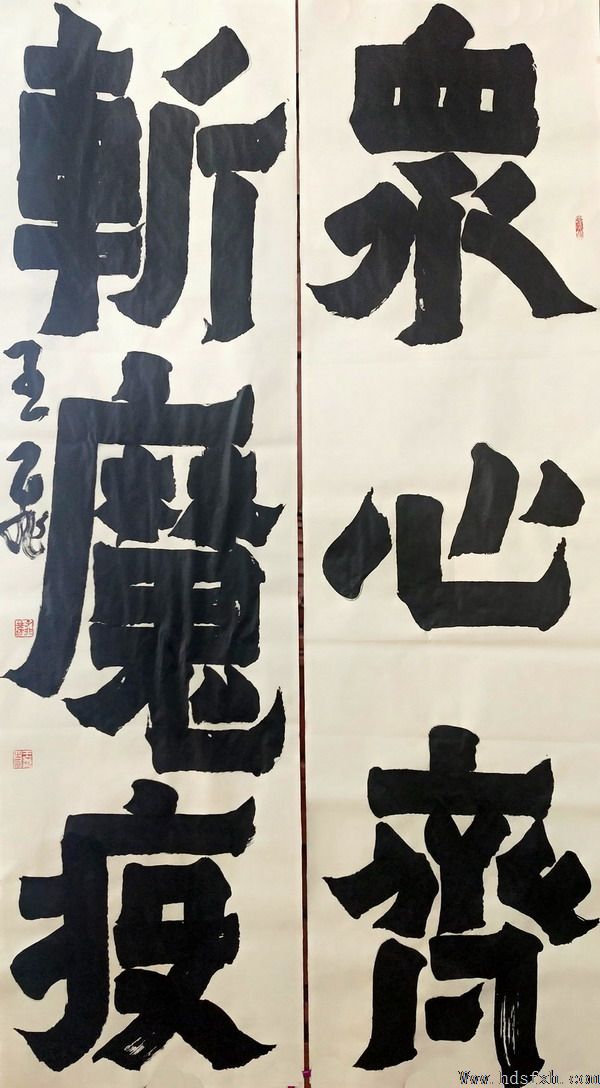 眾心齊
斬魔疫
www.hdsfxh.com